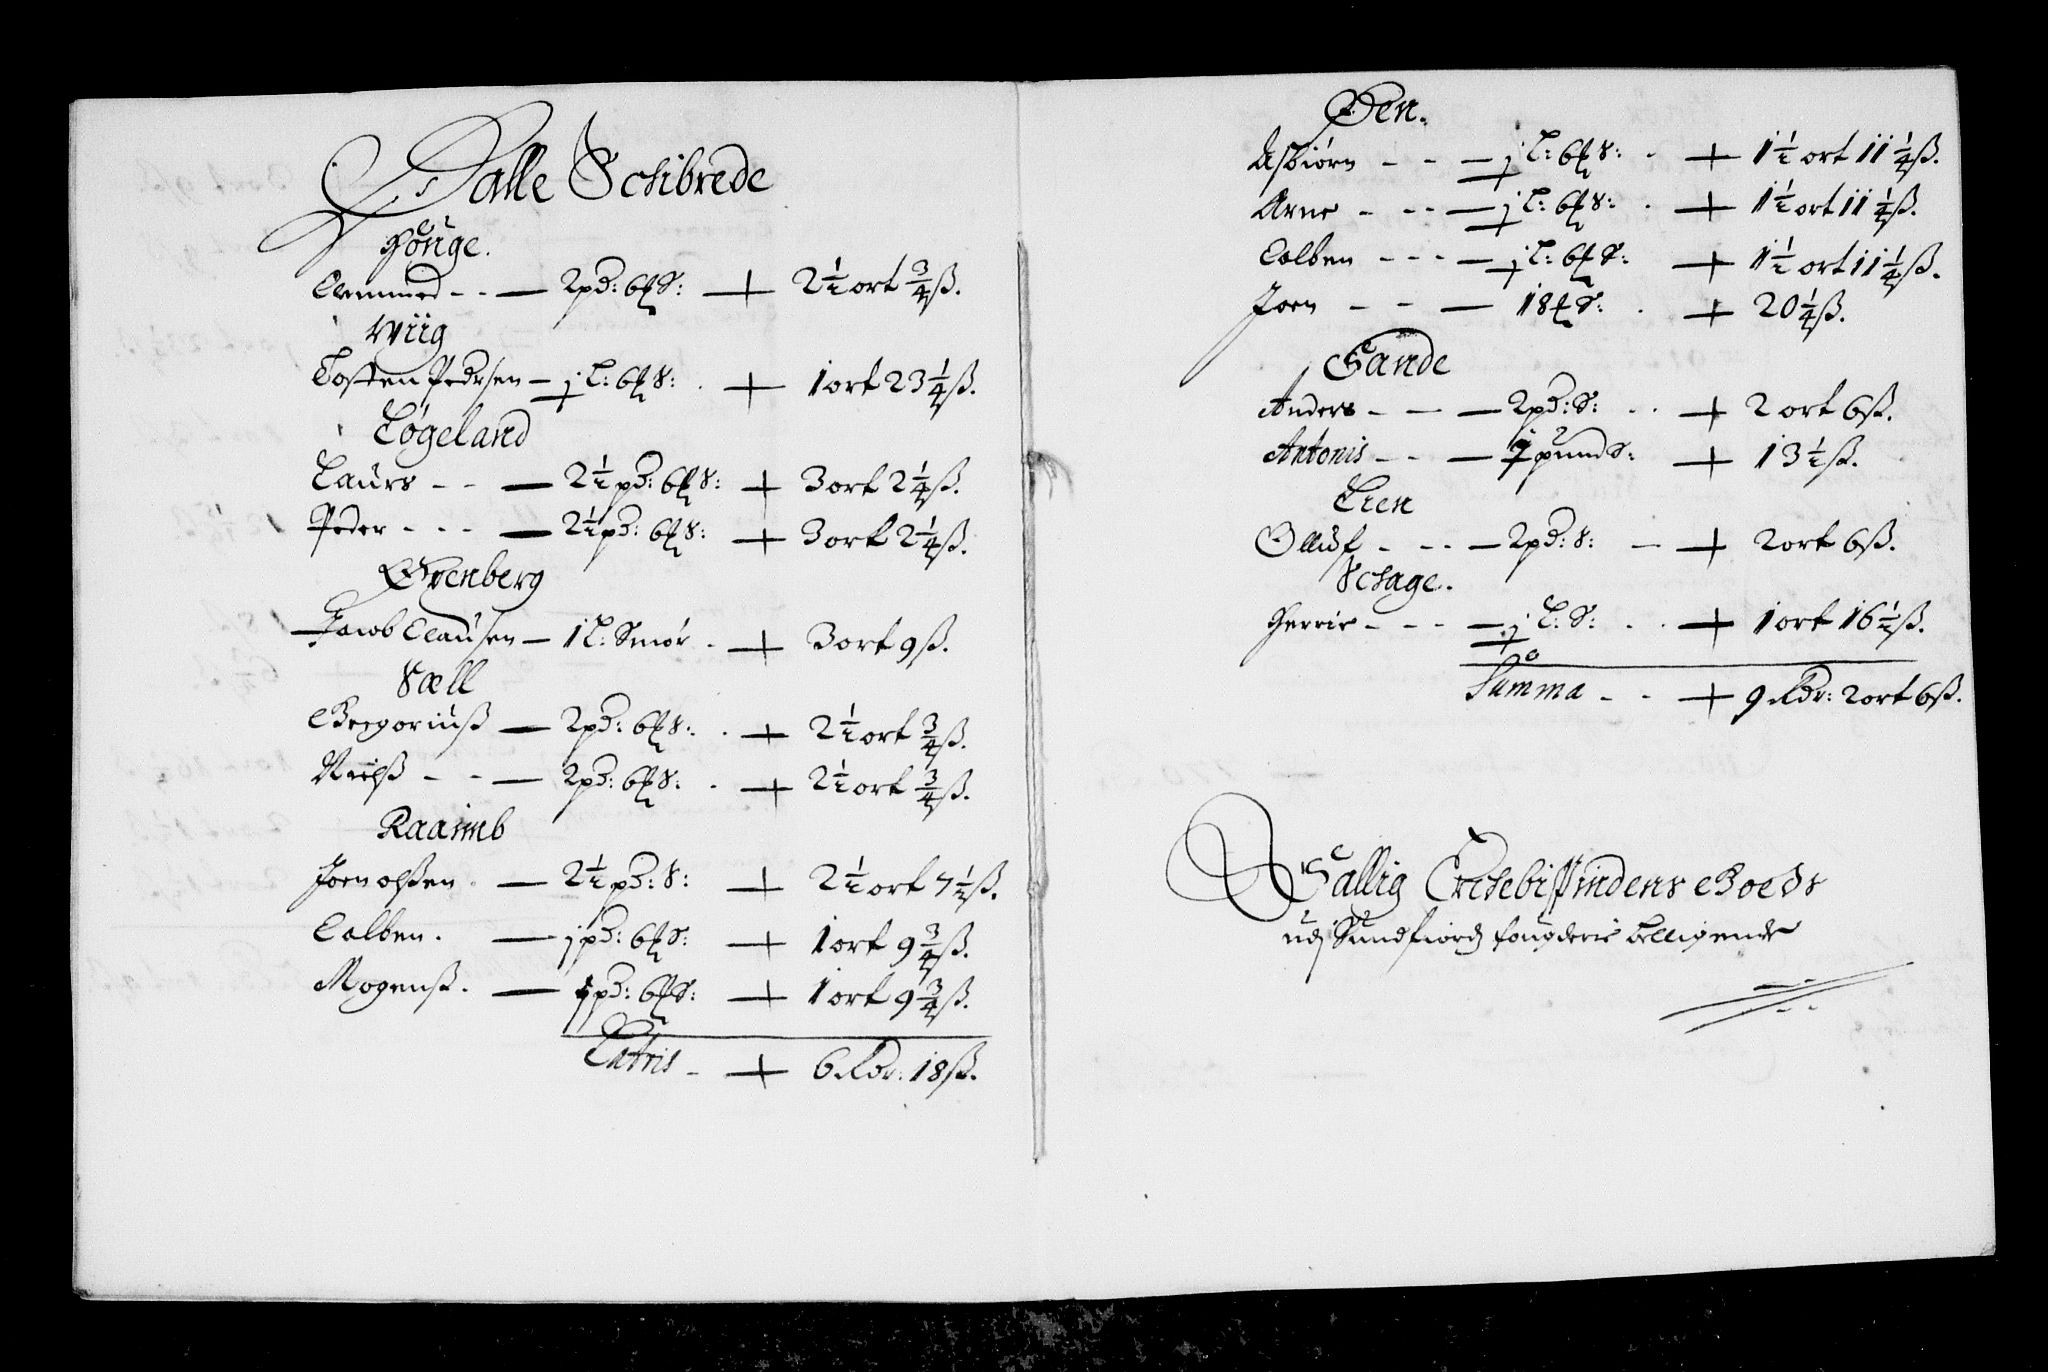 Dalle Schibrede
Houge.
Clemmed - - — 2 pd: 6 ℔ S: — 2½ ort ¾ ß.
Wiig
Tosten Pedersen — j L: 6 ℔ S: . — 1 ort 23¼ ß.
Løgeland
Laurs - - — 2½ pd: 6 ℔ S: — 3 ort 2¼ ß.
Peder - - - — 2½ pd: 6 ℔ S: — 3 ort 2¼ ß.
Grenberg
Jacob Clausen — 1 L: Smør . — 3 ort 9 ß.
Sæll
Gregoriuß — 2 pd: 6 ℔ S: . — 2½ ort ¾ ß.
Nielß - - — 2 pd: 6 ℔ S: . — 2½ ort ¾ ß.
Raaimb
Joen olßen . — 2½ pd: S: — 2½ ort 7½ ß.
Colben . — j pd: 6 ℔ S: — 1 ort 9¾ ß.
Mogenß . — j pd: 6 ℔ S: — 1 ort 9¾ ß.
Latris - — 6 Rdr: 18 ß.
Øen.
Asbiørn - - — j L: 6 ℔ S: . — 1½ ort 11¼ ß.
Arne - - - — j L: 6 ℔ S: . — 1½ ort 11¼ ß.
Colben - - - — j L: 6 ℔ S: — 1½ ort 11¼ ß.
Joen - - — 18 ℔ S: . — 20¼ ß.
Sande
Anders - - — 2 pd: S: . . — 2 ort 6 ß.
Antonis - - — j pund S: — 13½ ß.
Lien
Olluf - - - — 2 pd: S: — 2 ort 6 ß.
Schage.
Herrie - - - — j L: S: . . — 1 ort 16½ ß.
Summa - - — 9 Rdr: 2 ort 6 ß.
Sallig Erchebispindens Goeds
udj Sundfiord fougderie belligende